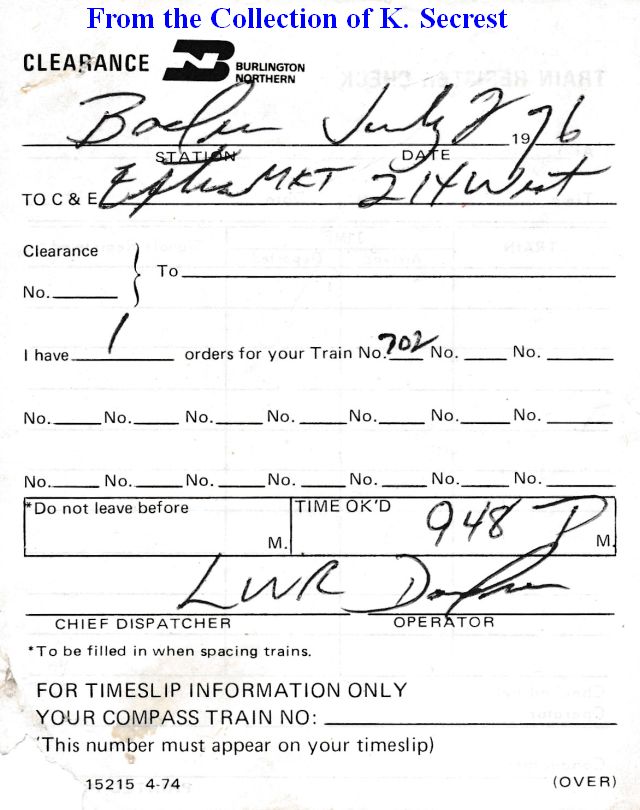 From the Collection of K. Secrest
CLEARANCE BURLINGTON NORTHERN
July 2 1976
STATION DATE
TO C & E MKT 214 West
Clearance
No. To
I have 1 orders for your Train No. 702 No. No.
No. No. No. No. No. No. No.
No. No. No. No. No. No. No.
*Do not leave before M. TIME OK'D 948 P M.
LWR
CHIEF DISPATCHER OPERATOR
*To be filled in when spacing trains.
FOR TIMESLIP INFORMATION ONLY
YOUR COMPASS TRAIN NO:
(This number must appear on your timeslip)
15215 4-74 (OVER)